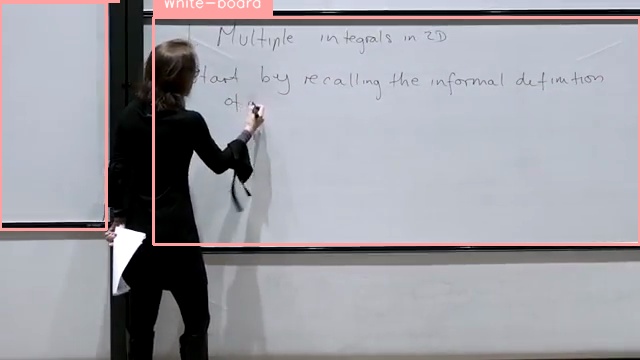 White-board
Multiple integrals in 2D
Start by recalling the informal definition
of a